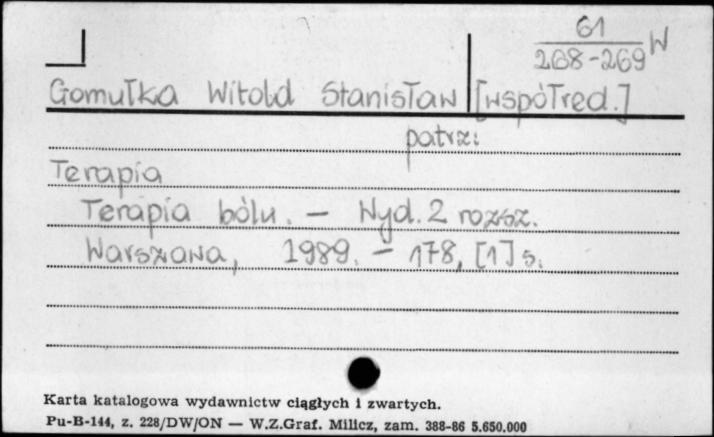 61
268-269 W
Gomułka Witold Stanisław [współred.]
patrz:
Terapia
Terapia bólu. – Wyd. 2 rozsz.
Warszawa, 1989. – 178, [1] s.
Karta katalogowa wydawnictw ciągłych i zwartych.
Pu-B-144, z. 228/DW/ON — W.Z.Graf. Milicz, zam. 388-86 5.650.000